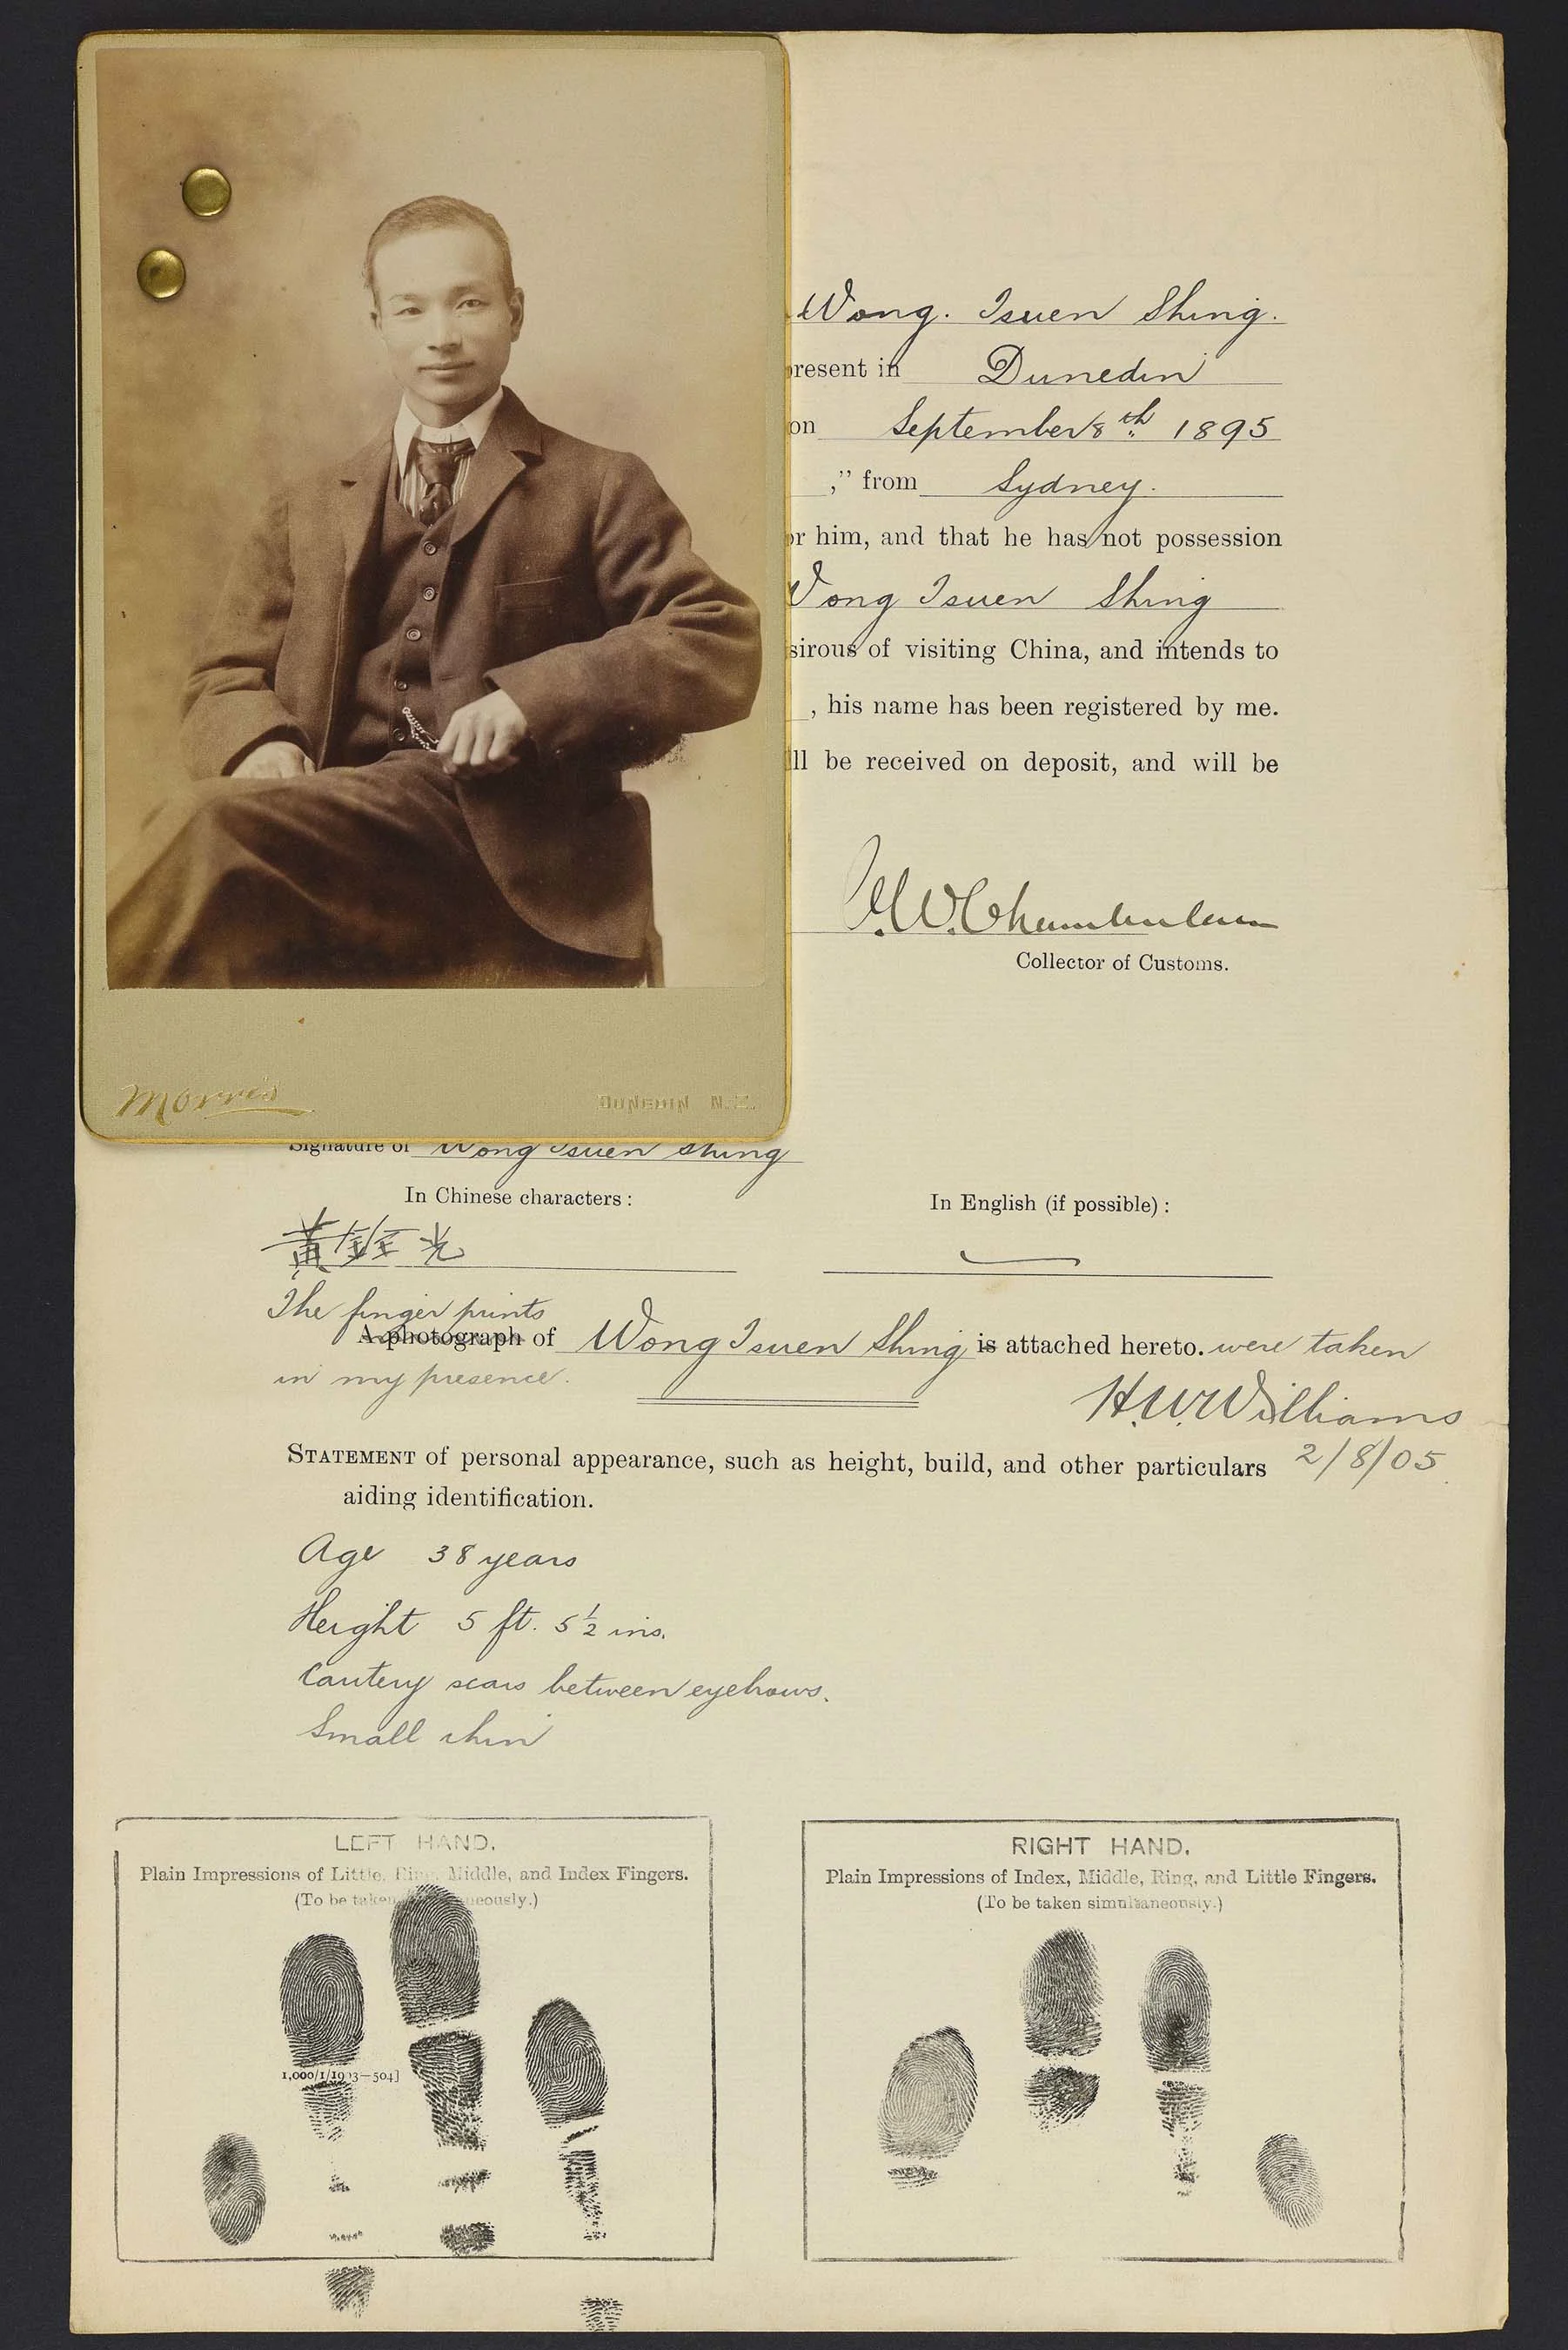 Wong. Tsuen Shing.
present in Dunedin
on September 8th 1895
," from Sydney.
or him, and that he has not possession
Wong Tsuen Shing
sirous of visiting China, and intends to
, his name has been registered by me.
ll be received on deposit, and will be
W. Chamberlain
Collector of Customs.
Morris
DUNEDIN N.Z.
Signature of Wong Tsuen Shing
In Chinese characters:
In English (if possible):
黃 光
The finger prints
A photograph of Wong Tsuen Shing is attached hereto. were taken
in my presence.
H. W. Williams
STATEMENT of personal appearance, such as height, build, and other particulars 2/8/05
aiding identification.
Age 38 years
Height 5 ft. 5½ ins.
Cautery scars between eyebrows.
Small chin
LEFT HAND.
Plain Impressions of Little, Ring, Middle, and Index Fingers.
(To be taken simultaneously.)
1,000/1/1903—504]
RIGHT HAND.
Plain Impressions of Index, Middle, Ring, and Little Fingers.
(To be taken simultaneously.)